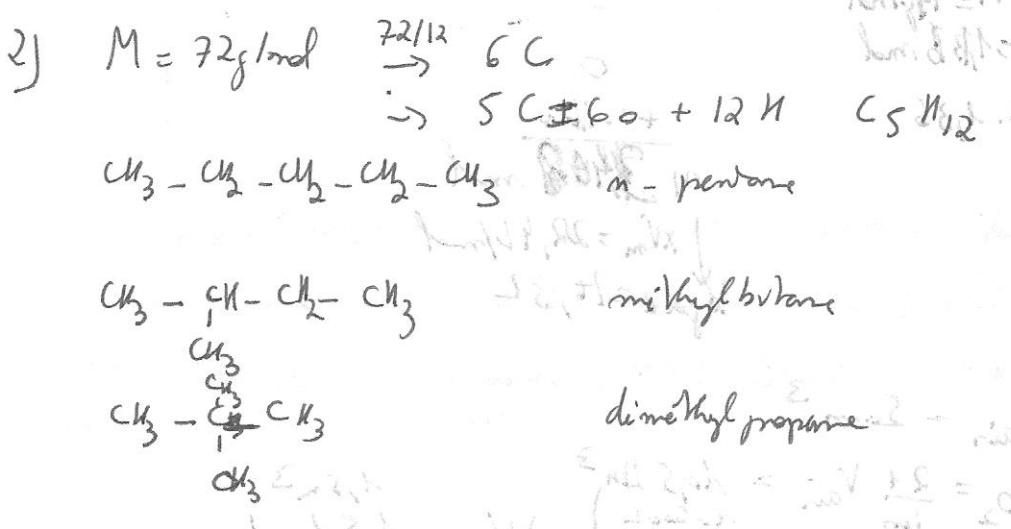 2) M = 72g/mol 72/12 → 6 C
→ 5 C = 60 + 12 H C5 H12
CH3 - CH2 - CH2 - CH2 - CH3 n - pentane
CH3 - CH - CH2 - CH3 méthylbutane
CH3
CH3
CH3 - C - CH3 diméthylpropane
CH3